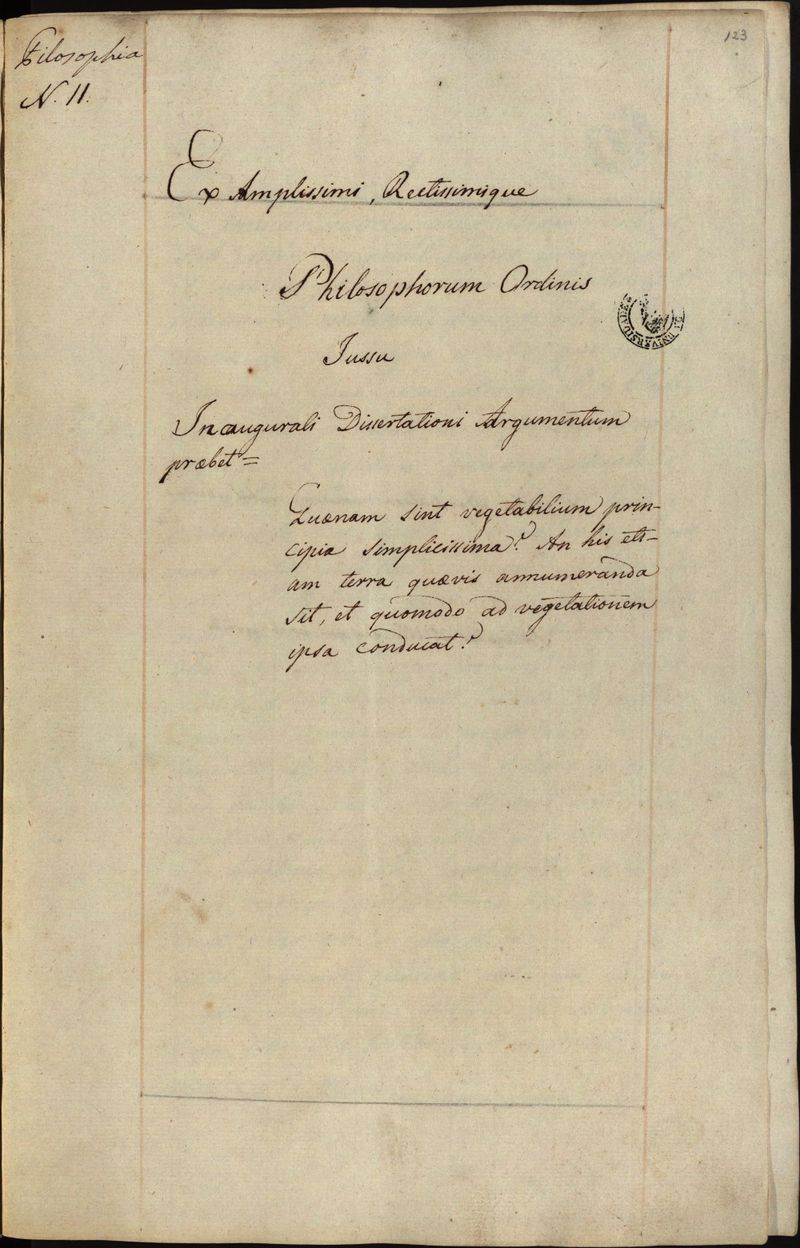 123
Filosophia
N. 11.
Ex Amplissimi, Rectissimique
Philosophorum Ordinis
Jussu
Inaugurali Dissertationi Argumentum
præbet=
Quænam sint vegetabilium prin-
cipia simplicissima? An his eti-
am terra quævis annumeranda
sit, et quomodo ad vegetationem
ipsa conducat?